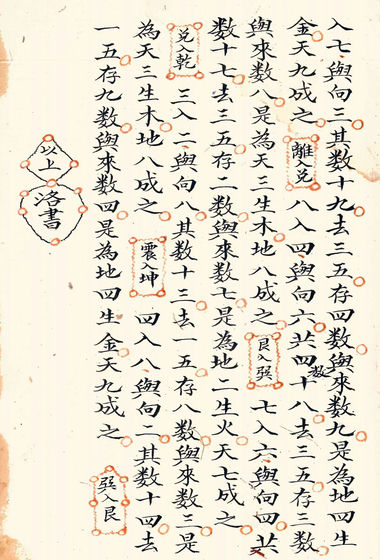 入七與向三其数十九去三五存四数與來数九是為地四生
金天九成之 離兑 八入四與向六共四数十八去三五存三数
與來数八是為天三生木地八成之 艮入巽 七入六與向四共
数十七去三五存二数與來数七是為地二生火天七成之
兑入乾 三入二與向八其数十三去一五存八数與來数三是
為天三生木地八成之 震入坤 四入八與向二其数十四去
一五存九数與來数四是為地四生金天九成之 巽入艮
以上 洛書